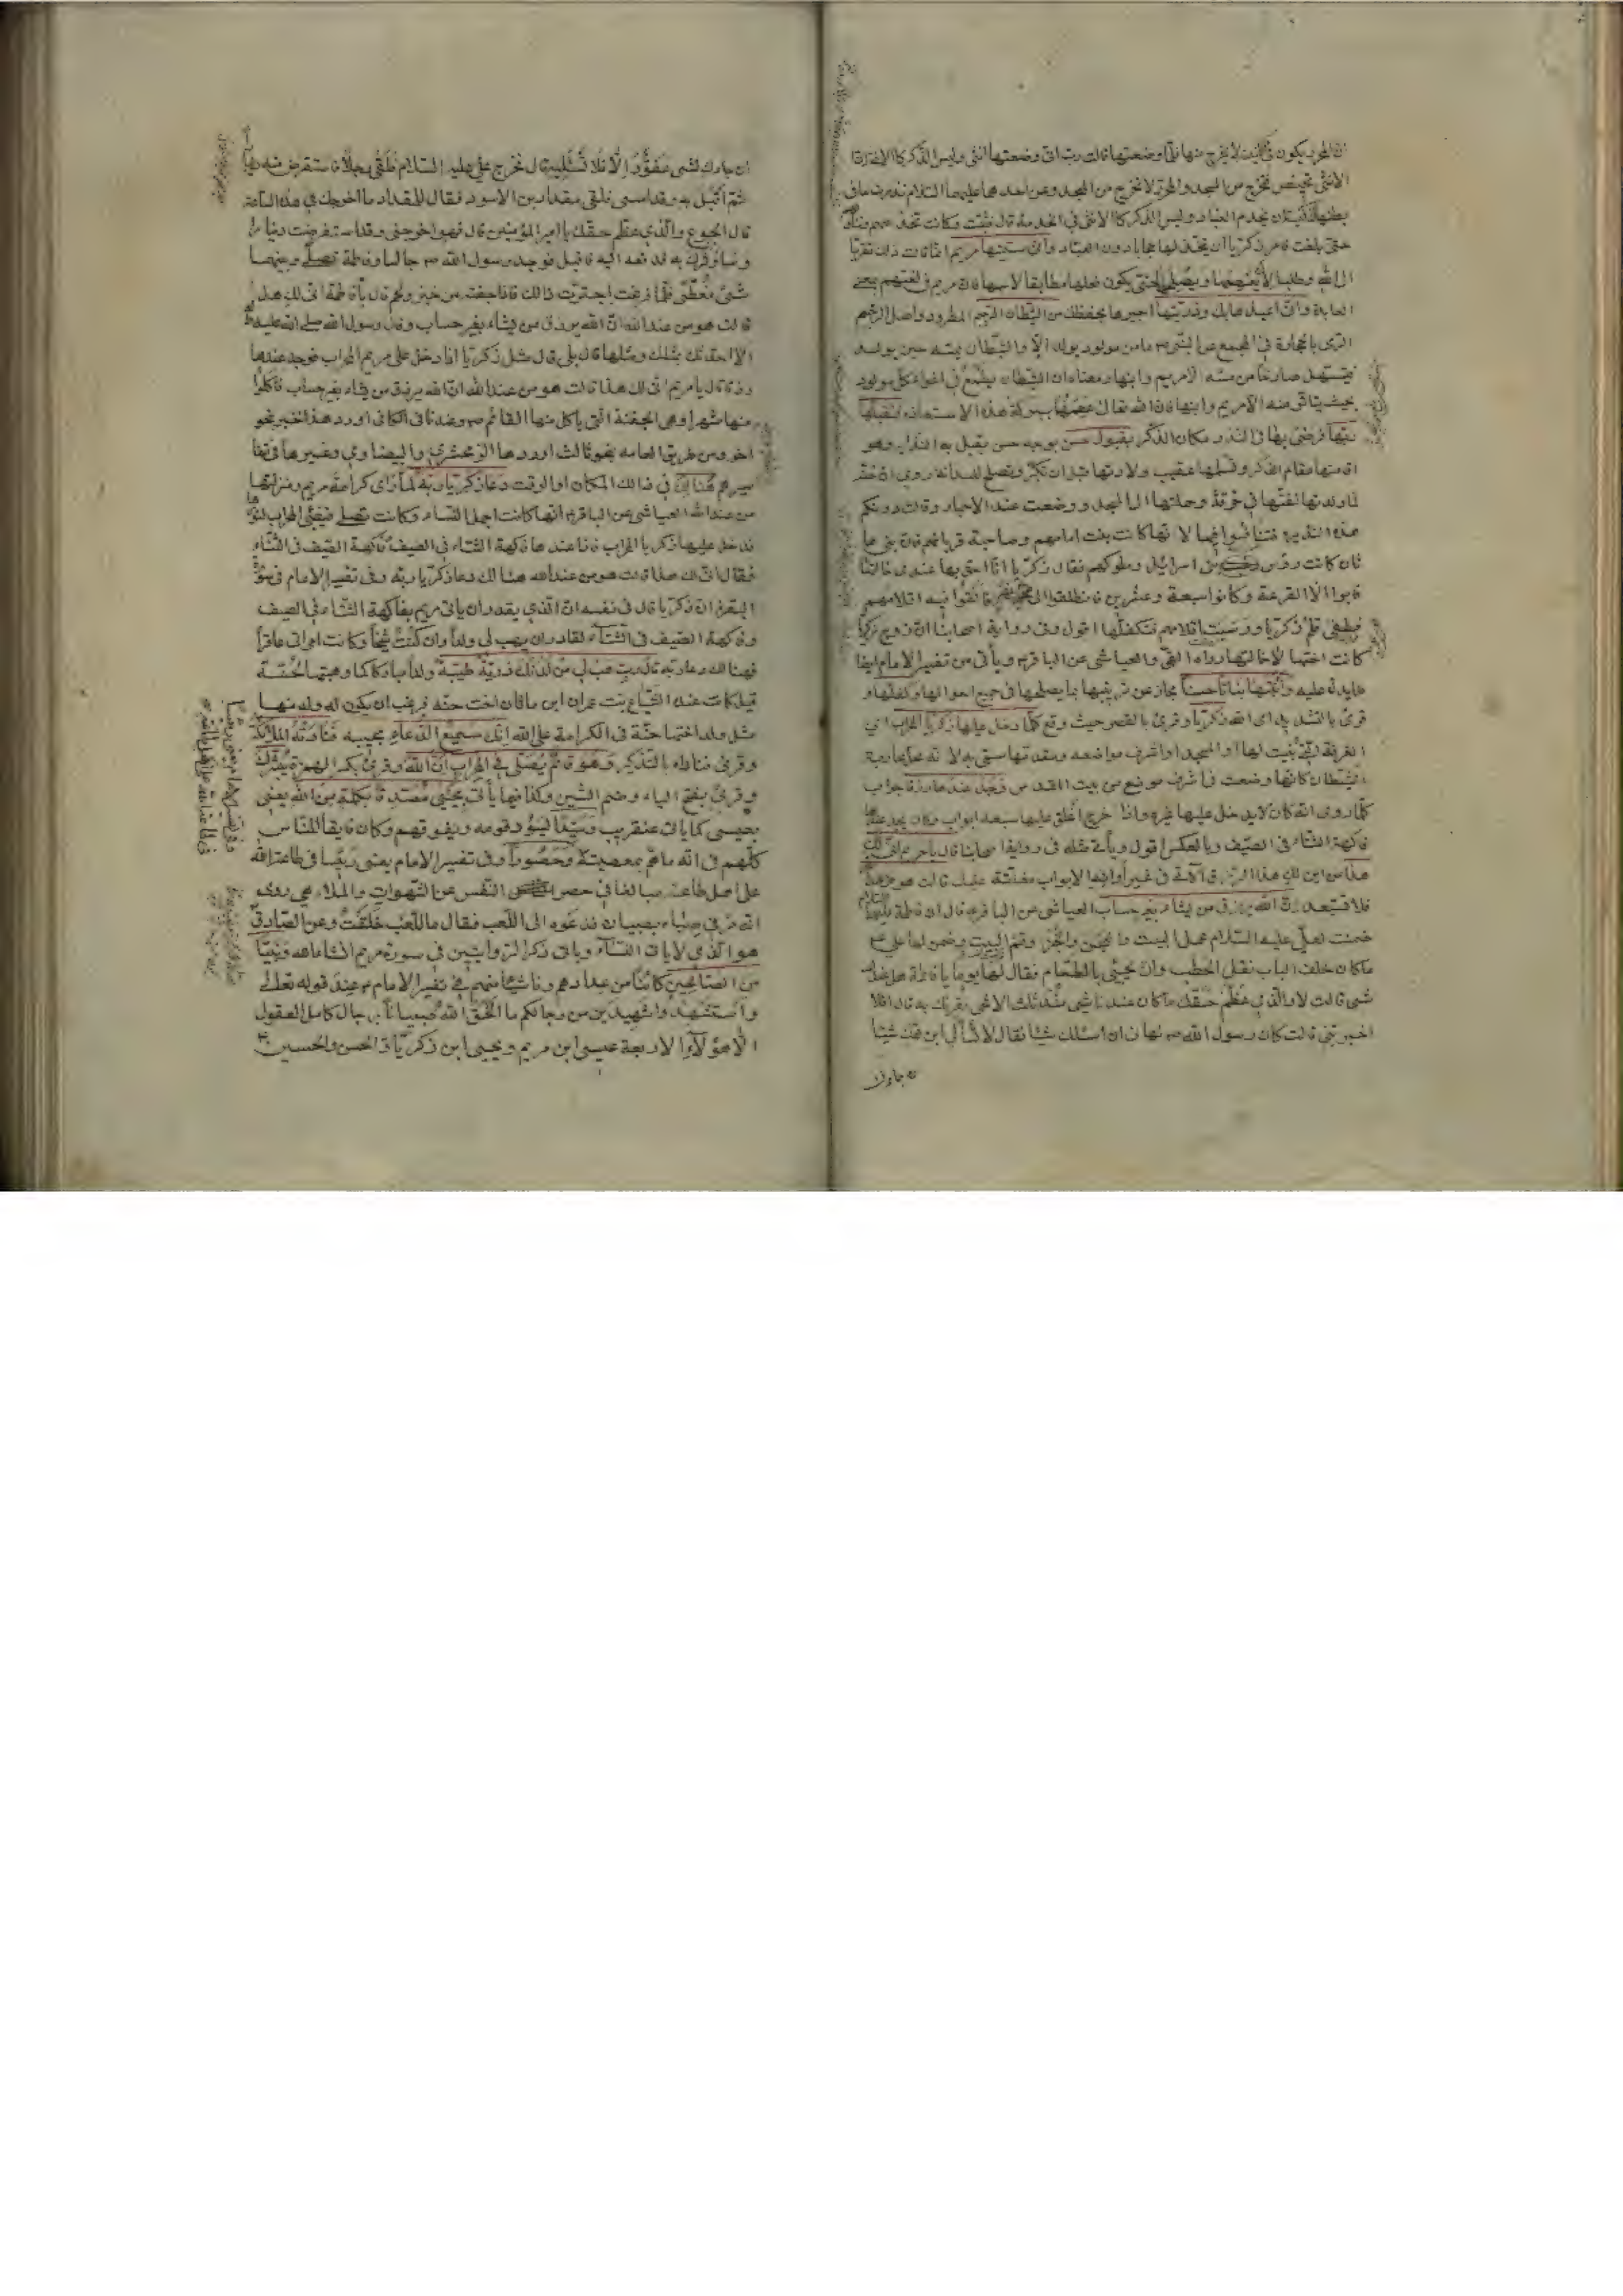 ان المحرر يكون في الكنيسة لا يخرج منها فلما وضعتها قالت رب اني وضعتها انثى وليس الذكر كالانثى ان
الانثى تحيض فتخرج من المسجد والمحرر لا يخرج من المسجد وعن احدهما عليهما السلام نذرت ما في
بطنها للكنيسة ان يخدم العباد وليس الذكر كالانثى في الخدمة قال فشبت وكانت تخدمهم
حتى بلغت فامر زكريا ان يتخذ لها حجابا دون العباد واني سميتها مريم انما ذكرت ذلك تقربا
الى الله وطلبا لان يعصمها ويصلحها حتى يكون فعلها مطابقا لاسمها فان مريم في لغتهم بمعنى
العابدة واني اعيذها بك وذريتها اجيرها بحفظك من الشيطان الرجيم المطرود واصل الرجم
الرمي بالحجارة في المجمع عن النبي ص ما من مولود يولد الا والشيطان يمسه حين يولد
فيستهل صارخا من مسه الا مريم وابنها ومعناه ان الشيطان يطمع في اغواء كل مولود
بحيث يتاثر منه الا مريم وابنها فان الله تعالى عصمها ببركة هذه الاستعاذة فتقبلها
ربها فرضي بها في النذر مكان الذكر بقبول حسن بوجه حسن يقبل به النذاير وهو
اقامتها مقام الذكر وتسلمها عقيب ولادتها قبل ان تكبر وتصلح للسدانة روي ان حنة
لما ولدتها لفتها في خرقة وحملتها الى المسجد ووضعت عند الاحبار وقالت دونكم
هذه النذيرة فتنافسوا فيها لانها كانت بنت امامهم وصاحب قربانهم فان بني ما
ثان كانت رؤس بني اسرائيل وملوكهم فقال زكريا انا احق بها عندي خالتها
فابوا الا القرعة وكانوا سبعة وعشرين فانطلقوا الى نهر فالقوا فيه اقلامهم
فطفى قلم زكريا ورسبت اقلامهم فتكفلها اقول وفي رواية اصحابنا ان زوجة زكريا
كانت اختها لا خالتها رواه القمي والعياشي عن الباقر ع وياتي من تفسير الامام ايضا
ما يدل عليه وانبتها نباتا حسنا مجاز عن تربيتها بما يصلحها في جميع احوالها وكفلها و
قرئ بالتشديد اي الله زكريا وقرئ بالقصر حيث وقع كلما دخل عليها زكريا المحراب اي
الغرفة التي بنيت لها او المسجد او اشرف مواضعه ومقدمها سمي به لانه محل محاربة
الشيطان كانها وضعت في اشرف موضع من بيت المقدس وجد عندها رزقا جواب
كلما روي انه كان لا يدخل عليها غيره واذا خرج اغلق عليها سبعة ابواب وكان يجد عندها
فاكهة الشتاء في الصيف وبالعكس اقول وياتي مثله في رواية اصحابنا قال يا مريم انى لك
هذا من اين لك هذا الرزق الاتي في غير اوانه والابواب مغلقة عليك قالت هو من عند الله
فلا تستبعد ان الله يرزق من يشاء بغير حساب العياشي عن الباقر ع قال ان فاطمة عليها السلام
ضمنت لعلي عليه السلام عمل البيت والعجين والخبز وقم البيت وضمن لها علي ع
ما كان خلف الباب نقل الحطب وان يجيئ بالطعام فقال لها يوما يا فاطمة هل عندك
شيئ قالت لا والذي عظم حقك ما كان عندنا شيئ منذ ثلث الا شيئ نقريك به قال افلا
اخبرتني قالت كان رسول الله ص نهاني ان اسئلك شيئا فقال لا تسألي ابن عمك شيئا
ان جاءك لشيئ عفوا والا فلا تسئليه قال فخرج علي عليه السلام فلقي رجلا فاستقرض منه دينارا
ثم اقبل به وقد امسى فلقي مقداد بن الاسود فقال للمقداد ما اخرجك في هذه الساعة
قال الجوع والذي عظم حقك يا امير المؤمنين قال فهو اخرجني وقد استقرضت دينارا
وساوثرك به فدفعه اليه فاقبل فوجد رسول الله ص جالسا وفاطمة تصلي وبينهما
شيئ مغطى فلما فرغت احضرت ذلك فاذا جفنة من خبز ولحم قال يا فاطمة انى لك هذا
قالت هو من عند الله ان الله يرزق من يشاء بغير حساب وقال رسول الله صلى الله عليه
الا احدثك بمثلك ومثلها قال بلى قال مثل زكريا اذا دخل على مريم المحراب فوجد عندها
رزقا قال يا مريم انى لك هذا قالت هو من عند الله ان الله يرزق من يشاء بغير حساب فاكلوا
منها شهرا وهي الجفنة التي ياكل منها القائم ع وهي عندنا في الكافي اورد هذا الخبر بنحو
اخر ومن طريق العامة بنحو ثالث اوردها الزمخشري والبيضاوي وغيرهما في تفا
سيرهم هنالك في ذلك المكان او الوقت دعا زكريا ربه لما راى كرامة مريم ومنزلتها
من عند الله العياشي عن الباقر ع انها كانت اجمل النساء وكانت تصلي فيضيئ المحراب لنورها
فدخل عليها زكريا المحراب فاذا عندها فاكهة الشتاء في الصيف وفاكهة الصيف في الشتاء
فقال انى لك هذا قالت هو من عند الله هنالك دعا زكريا ربه وفي تفسير الامام في سورة
البقرة ان زكريا قال في نفسه ان الذي يقدر ان ياتي مريم بفاكهة الشتاء في الصيف
وفاكهة الصيف في الشتاء لقادر ان يهب لي ولدا وان كنت شيخا وكانت امراتي عاقرا
فهنالك دعا ربه قال رب هب لي من لدنك ذرية طيبة ولدا مباركا كما وهبتها لحنة
قيل كانت عنده ايشاع بنت عمران ابن ماثان اخت حنة فرغب ان يكون له ولد منها
مثل ولد اختها حنة في الكرامة على الله انك سميع الدعاء مجيبه فنادته الملائكة
وقرئ فناداه بالتذكير وهو قائم يصلي في المحراب ان الله وقرئ بكسر الهمزة يبشرك
وقرئ بفتح الياء وضم الشين وكذا فيما ياتي بيحيى مصدقا بكلمة من الله يعني
بعيسى كما ياتي عنقريب وسيدا ليسود قومه ويفوقهم وكان فايقا للناس
كلهم في انه ما هم بمعصية وحصورا وفي تفسير الامام يعني رئيسا في طاعة الله
على اهل طاعته مبالغا في حصر النفس عن الشهوات والملاهي روي
انه مر في صباه بصبيان فدعوه الى اللعب فقال ما للعب خلقت وعن الصادق
هو الذي لا ياتي النساء وياتي ذكر الروايتين في سورة مريم انشاء الله ونبيا
من الصالحين كائنا من عدادهم وناشيا منهم في تفسير الامام ع عند قوله تعالى
واستشهدوا شهيدين من رجالكم ما الحق الله صبيانا برجال كاملي العقول
الا هؤلاء الاربعة عيسى ابن مريم ويحيى ابن زكريا والحسن والحسين